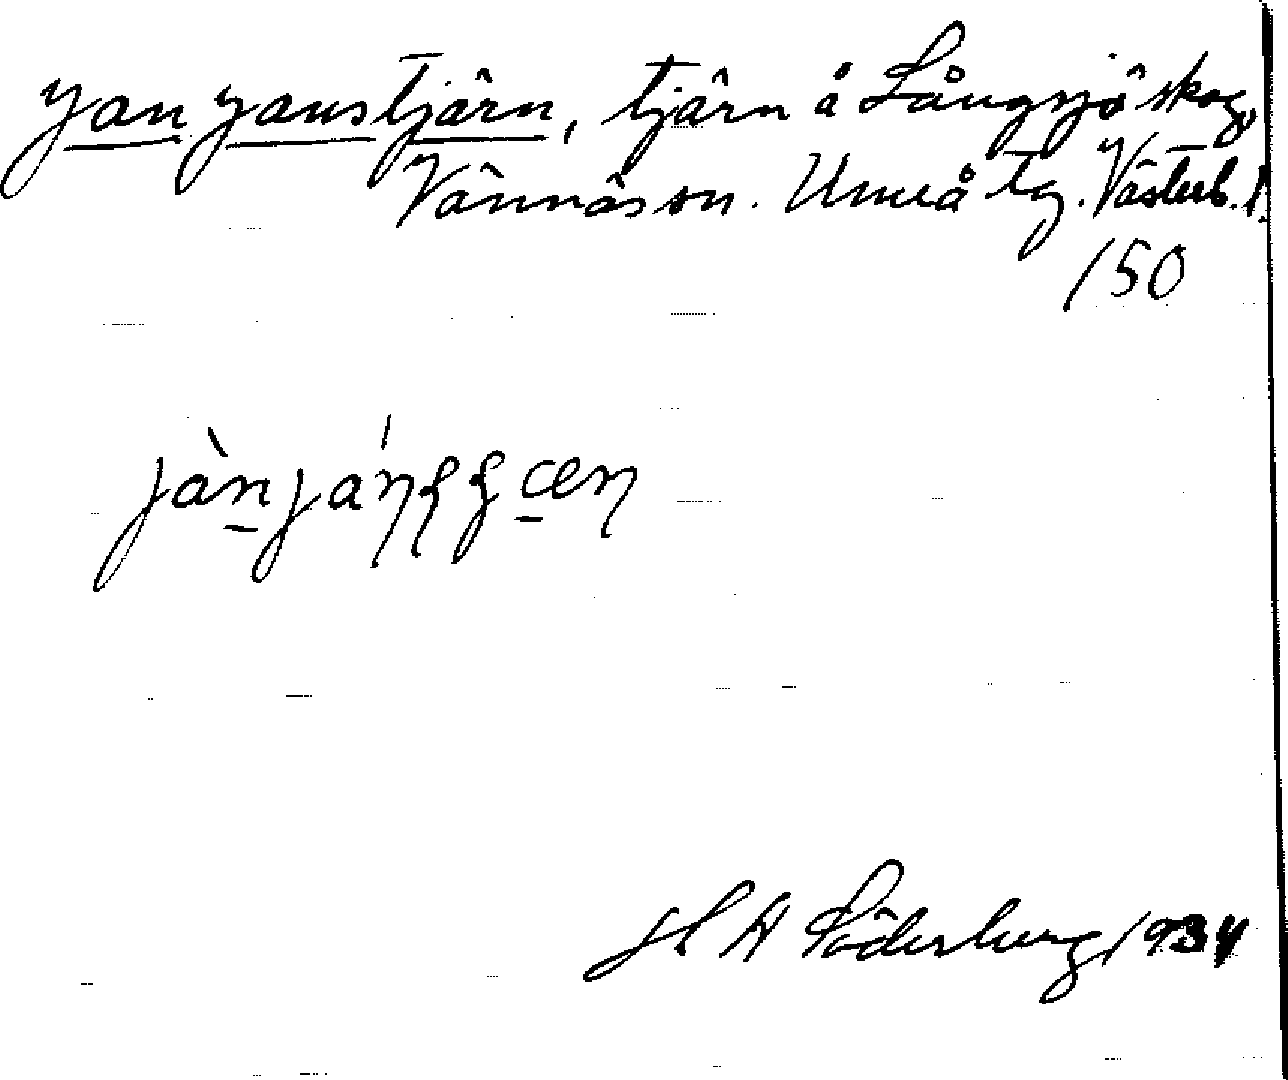 Jan Janstjärn, tjärn å Långsjö skog,
Vännäs sn. Umeå tg. Västerb. l.
150
H A Söderberg 1934